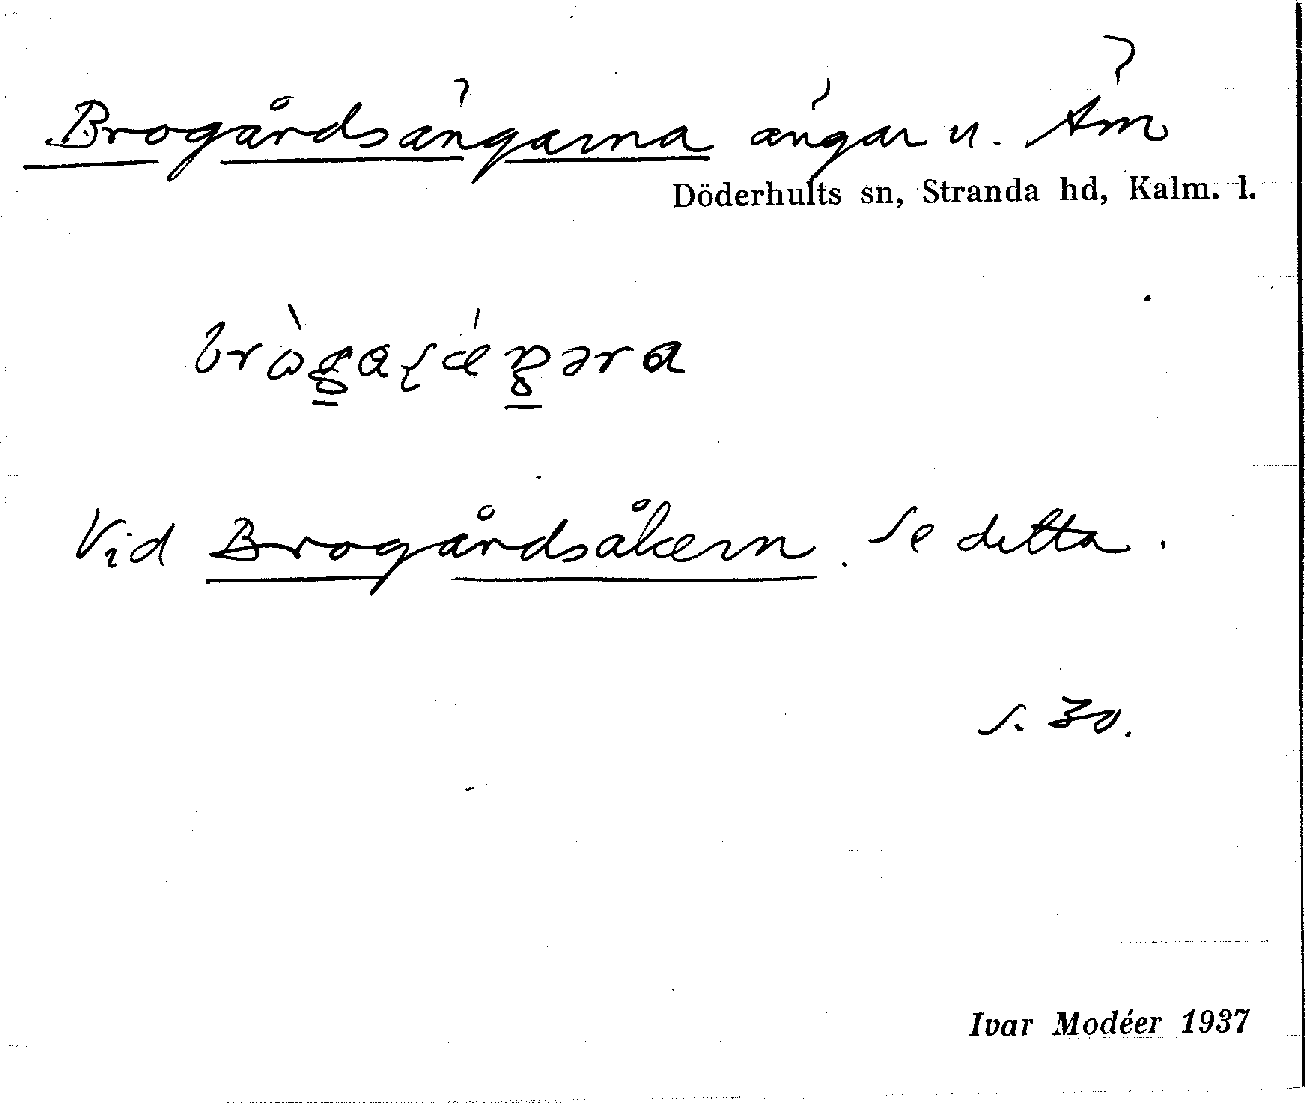 Brogårdsängarna ängar u. Äm
Döderhults sn, Stranda hd, Kalm. l.
Vid Brogårdsåkern. Se detta.
s. 30.
Ivar Modéer 1937